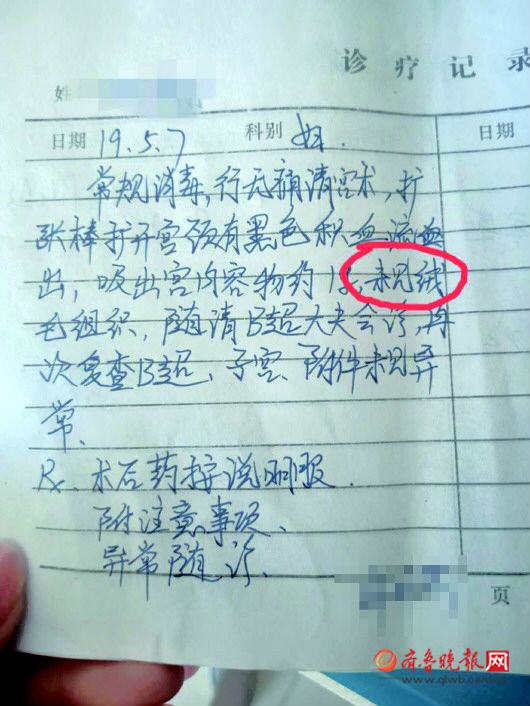 诊疗记录
姓
日期 19.5.7 科别 妇. 日期
常规消毒,行无痛清宫术,扩
张棒扩开宫颈有黑色积血流血
出,吸出宫内容物约1g,未见绒
毛组织,随请B超大夫会诊,再
次复查B超、子宫、附件未见异
常.
Rx 术后药按说明服
附注意事项、
异常随诊、
页
齐鲁晚报网
www.qlwb.com.cn